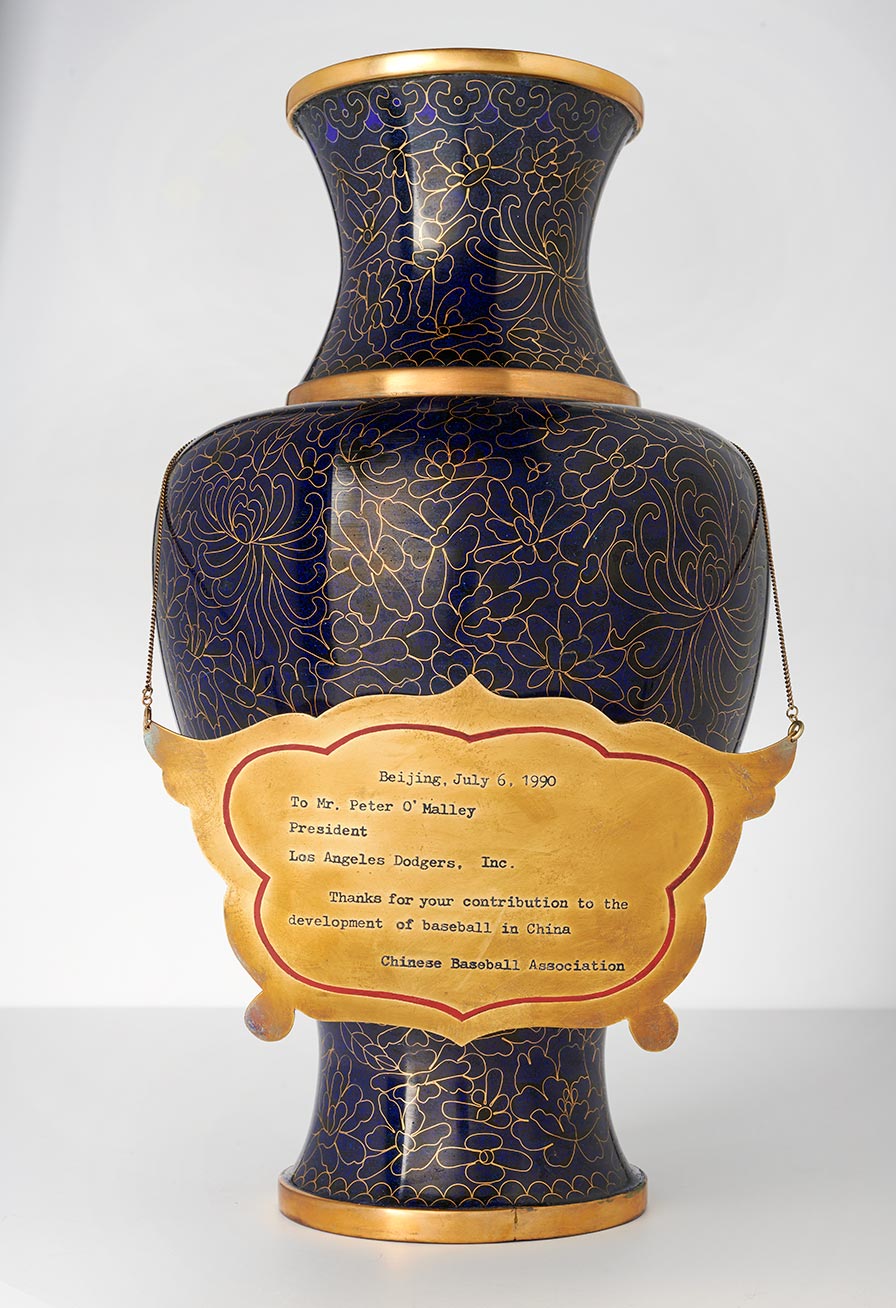 Beijing, July 6, 1990
To Mr. Peter O'Malley
President
Los Angeles Dodgers, Inc.
Thanks for your contribution to the
development of baseball in China
Chinese Baseball Association